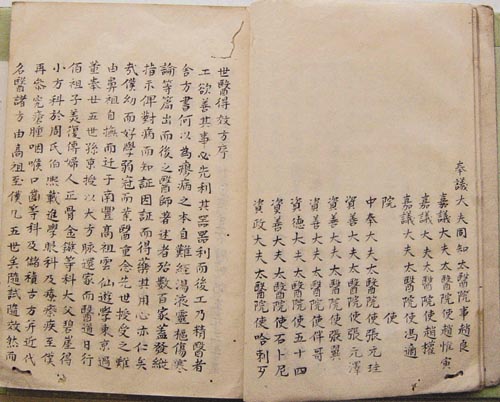 奉議大夫同知太醫院事趙良
嘉議大夫太醫院使趙惟寅
嘉議大夫太醫院使趙權
嘉議大夫太醫院使馮適
院使
中奉大夫太醫院使張元珪
資善大夫太醫院使張元澤
資善大夫太醫院使張翼
資善大夫太醫院使伴哥
資德大夫太醫院使五十四
資善大夫太醫院使石卜尼
資政大夫太醫院使哈剌歹
世醫得效方序
工欲善其事必先利其器器利而後工乃精醫者
舍方書何以為療病之本自難經湯液靈樞傷寒
論等篇出而後之醫師著述者殆數百家蓋發縱
指示俾對病而知証因証而得藥其用心亦仁矣
哉僕幼而好學弱冠而業醫重念先世授受之難
由鼻祖自撫而迁于南豐高祖雲仙遊學東京遇
董奉廿五世孫京授以大方脉還家而醫道日行
伯祖子美復傳婦人正骨金鏃等科大父碧崖得
小方科於周氏伯熙載進學眼科及療瘵疾至僕
再參究瘡腫咽喉口齒等科及儲積古方并近代
名醫諸方由高祖至僕凡五世矣隨試隨效然而